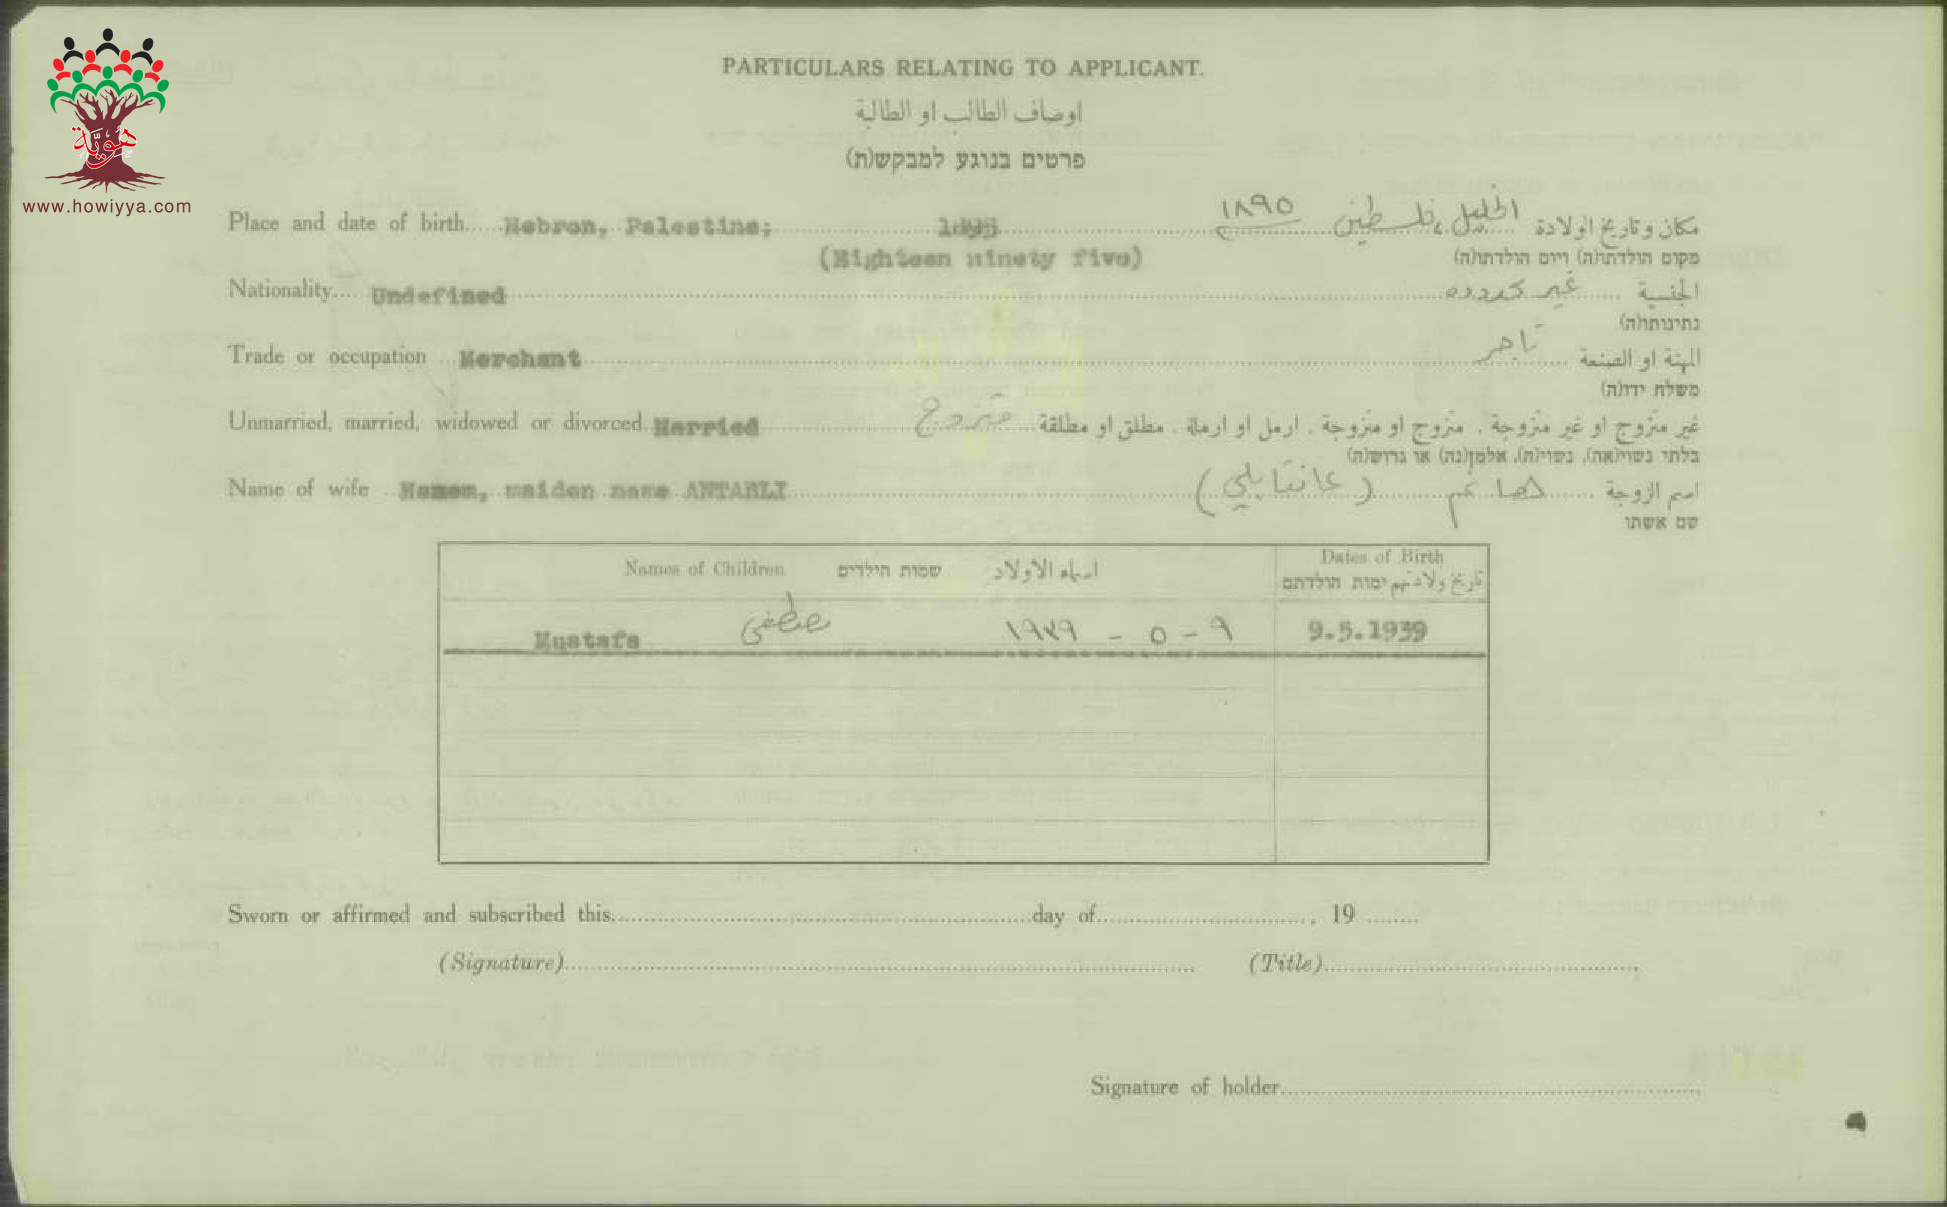 هويّة
www.howiyya.com
PARTICULARS RELATING TO APPLICANT.
اوصاف الطالب او الطالبة
פרטים בנוגע למבקש(ת)
Place and date of birth Hebron, Palestine; 1895 ١٨٩٥ الخليل، فلسطين مكان وتاريخ الولادة
(Eighteen ninety five) מקום הולדתו(ה) ויום הולדתו(ה)
Nationality Undefined غير محدوده الجنسية
נתינותו(ה)
Trade or occupation Merchant تاجر المهنة او الصنعة
משלח ידו(ה)
Unmarried, married, widowed or divorced Married متزوج غير متزوج او غير متزوجة . متزوج او متزوجة . ارمل او ارملة . مطلق او مطلقة
בלתי נשוי(אה), נשוי(ה), אלמן(נה) או גרוש(ה)
Name of wife maiden name ANTABLI اسم الزوجة
שם אשתו
Names of Children שמות הילדים اسماء الاولاد Dates of Birth
تاريخ ولادتهم ימות הולדתם
Mustafa مصطفى ٩ - ٥ - ١٩٣٩ 9.5.1939
Sworn or affirmed and subscribed this day of , 19
(Signature) (Title)
Signature of holder